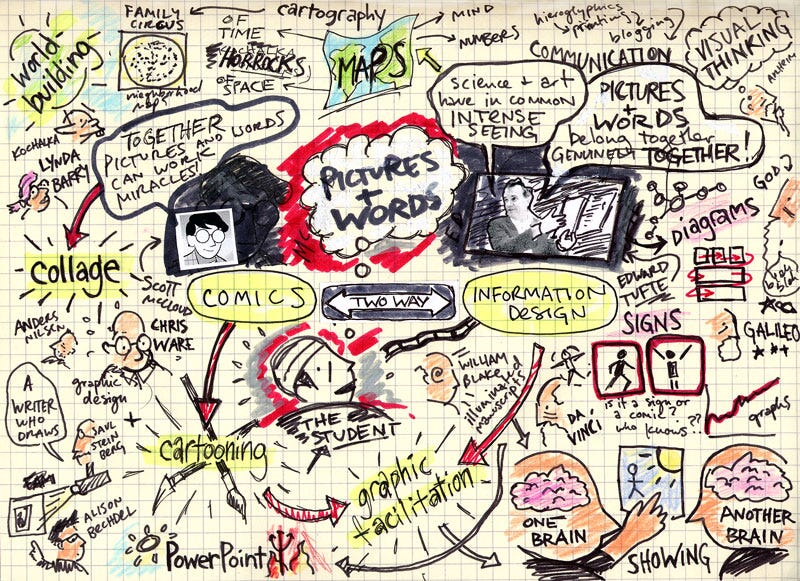 FAMILY
CIRCUS
neighborhood
maps
world-
building
OF
TIME
HORROCKS
OF
SPACE
cartography
MAPS
MIND
NUMBERS
hieroglyphics
printing
blogging
COMMUNICATION
VISUAL
THINKING
KOCHALKA
LYNDA
BARRY
TOGETHER
PICTURES AND WORDS
CAN WORK
MIRACLES!
PICTURES
+
WORDS
science + art
have in common
INTENSE
SEEING
PICTURES
+
WORDS
belong together
GENUINELY TOGETHER!
GOD
DIAGRAMS
collage
SCOTT
McCLOUD
COMICS
TWO WAY
INFORMATION
DESIGN
EDWARD
TUFTE
blah
blah
ANDERS
NILSEN
CHRIS
WARE
graphic
design
SIGNS
GALILEO
WILLIAM
BLAKE
illuminated
manuscripts
DA
VINCI
is it a sign or
a comic?
who knows??
graphs
A
WRITER
WHO
DRAWS
SAUL
STEIN
BERG
+
THE
STUDENT
cartooning
graphic
facilitation
ALISON
BECHDEL
PowerPoint
ONE
BRAIN
ANOTHER
BRAIN
SHOWING